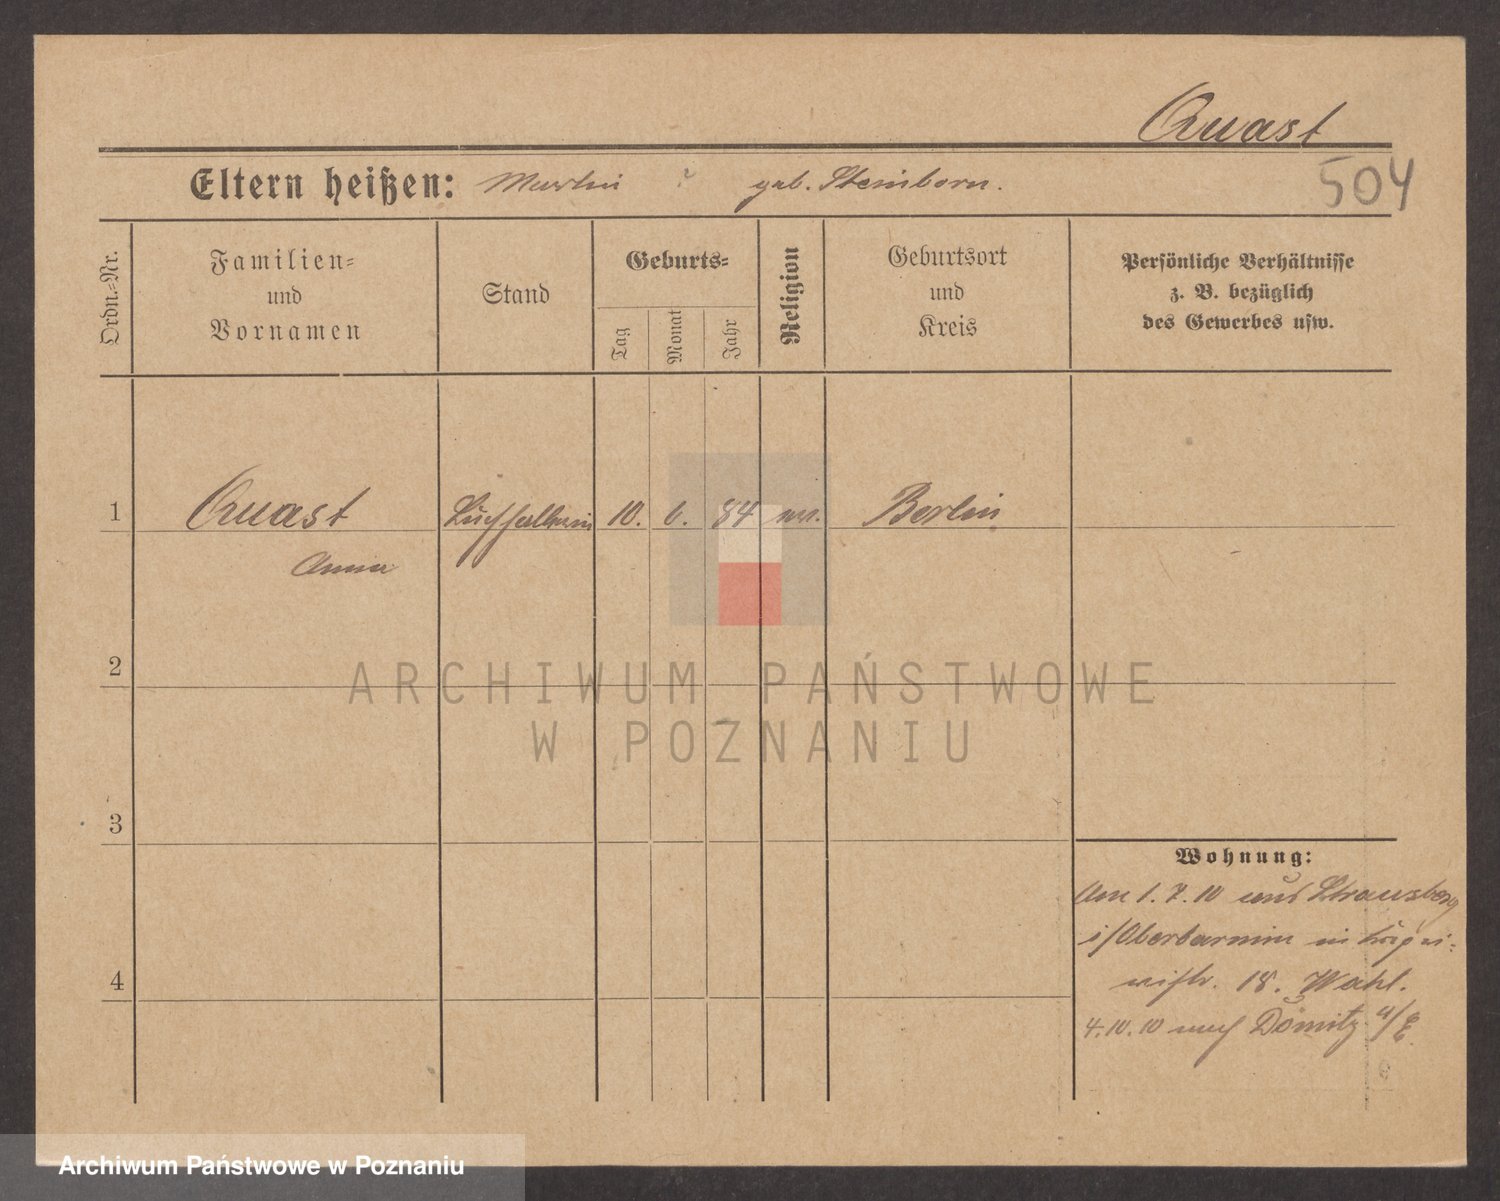 Quast
Eltern heißen: Martin ? geb. Steinborn.
504
Ordn.-Nr.
Familien-
und
Vornamen
Stand
Geburts-
Tag
Monat
Jahr
Religion
Geburtsort
und
Kreis
Persönliche Verhältnisse
z. B. bezüglich
des Gewerbes usw.
1 Quast 10. 6. 84 Berlin
Anna
2
ARCHIWUM PAŃSTWOWE
W POZNANIU
3
Wohnung:
Am 1.7.10 aus Strausberg
i/Oberbarnim in
18. Wahl.
4
4.10.10 nach Dömitz a/E
Archiwum Państwowe w Poznaniu